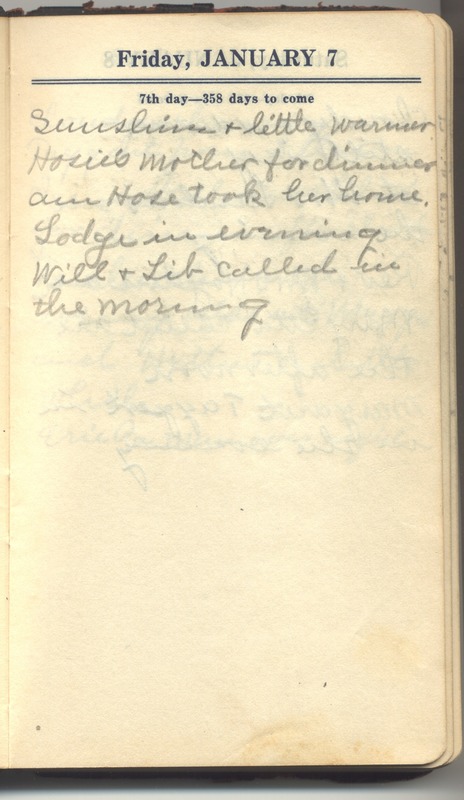 Friday, JANUARY 7
7th day—358 days to come
Sunshine + little warmer
Hosie's Mother for dinner
and Hose took her home.
Lodge in evening
Will + Lib called in
the morning